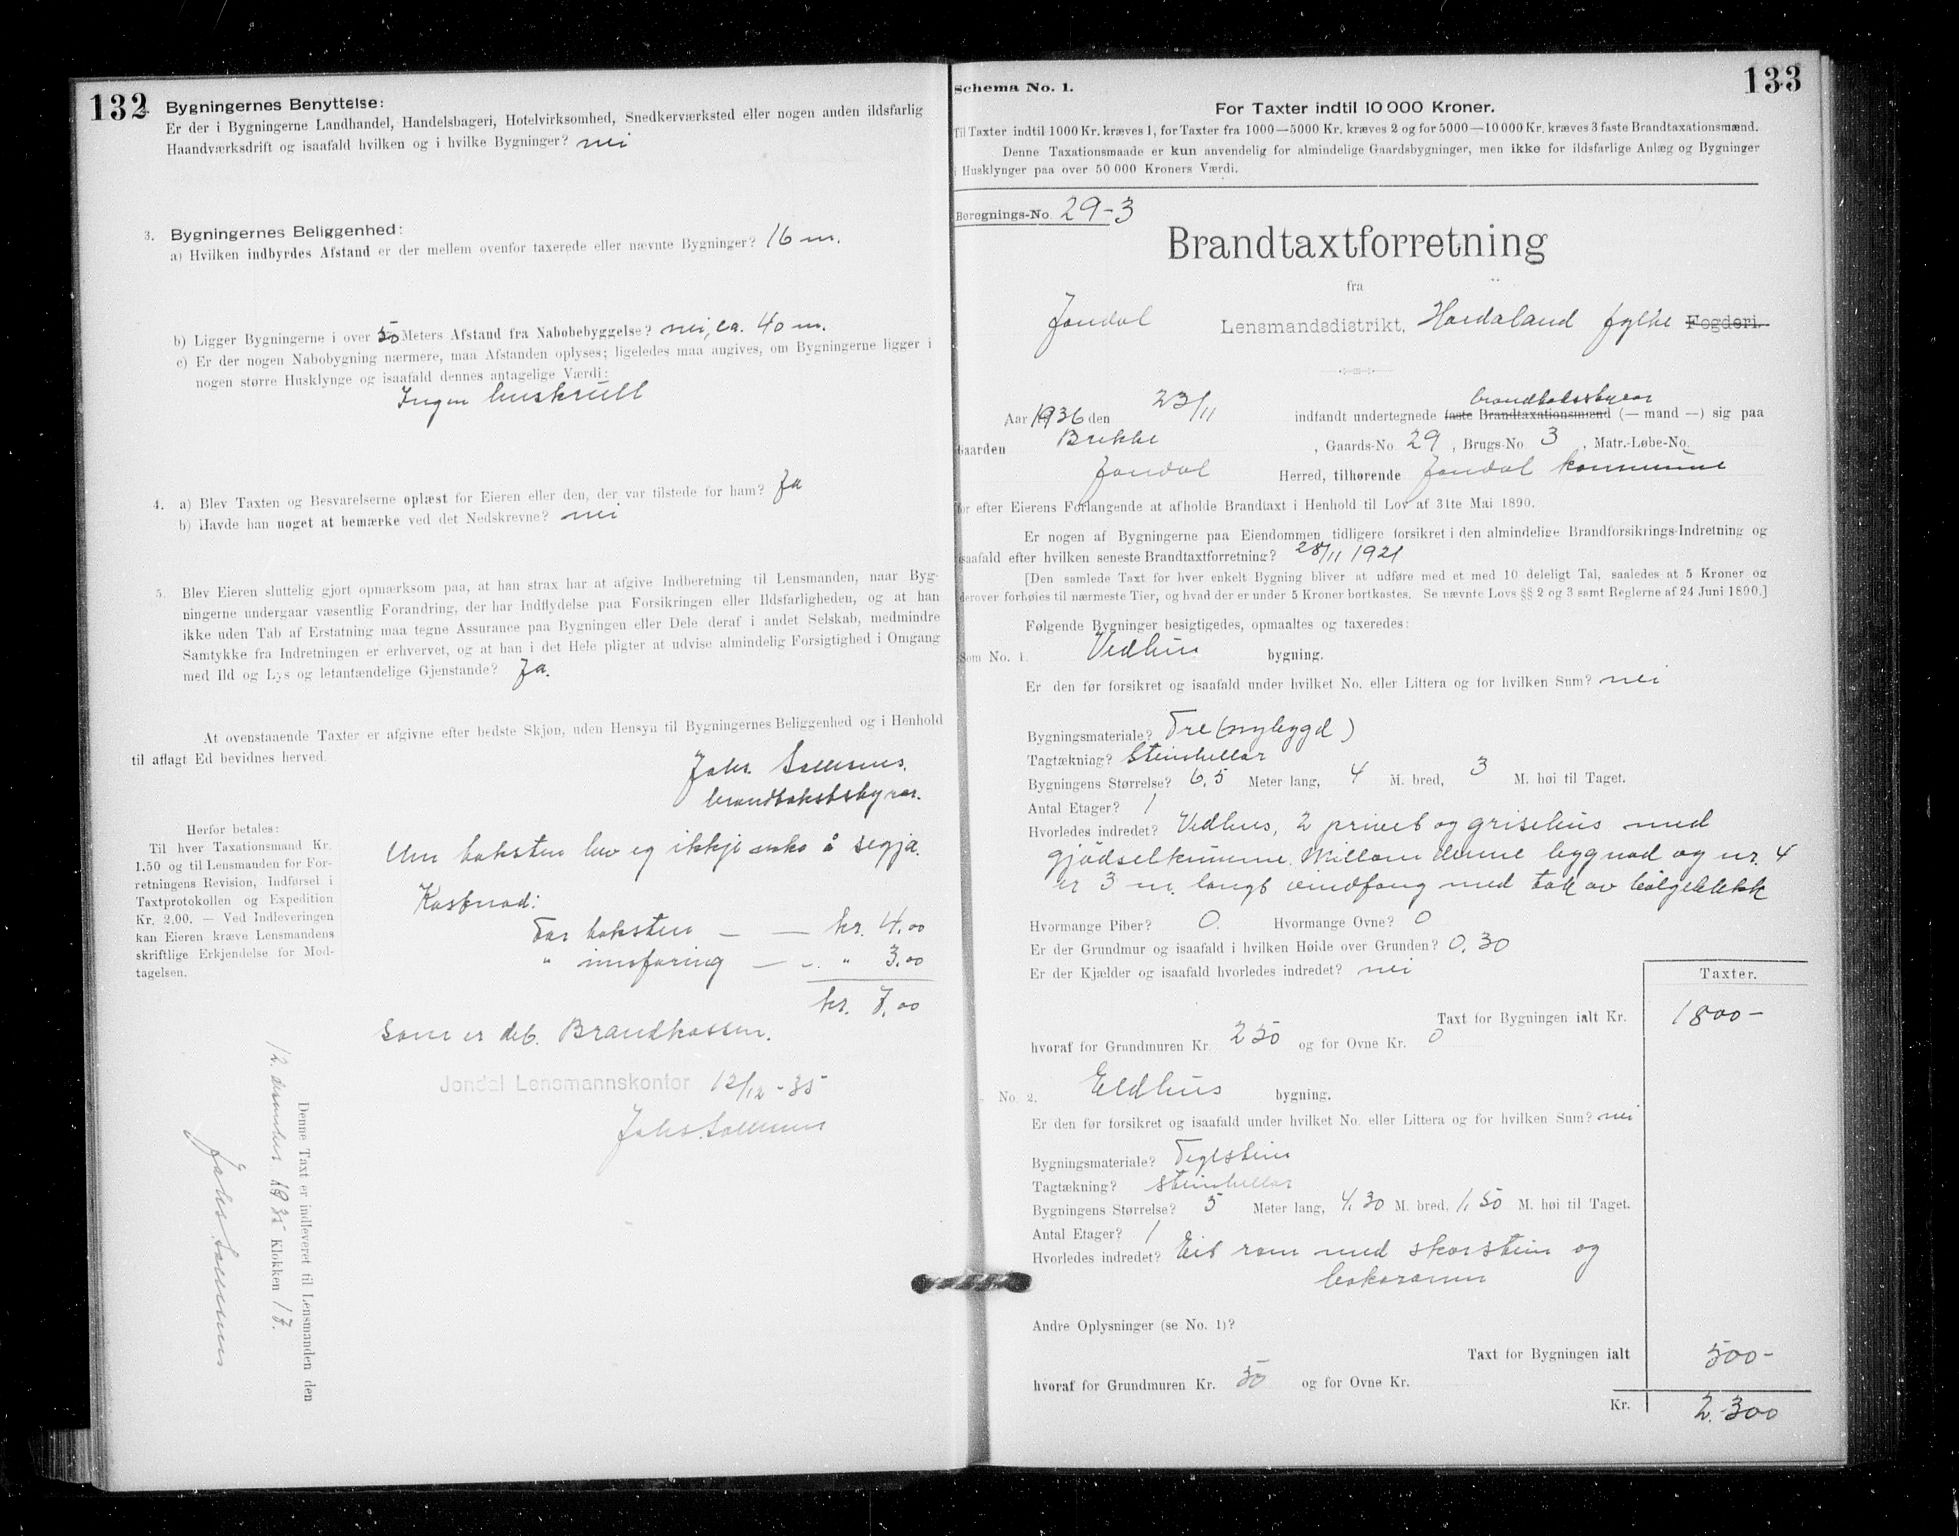 132
Bygningernes Benyttelse:
Er der i Bygningerne Landhandel, Handelsbageri, Hotelvirksomhed, Snedkerværksted eller nogen anden ildsfarlig
Haandværksdrift og isaafald hvilken og i hvilke Bygninger? nei
3. Bygningernes Beliggenhed:
a) Hvilken indbyrdes Afstand er der mellem ovenfor taxerede eller nævnte Bygninger? 16 m.
b) Ligger Bygningerne i over 50 Meters Afstand fra Nabobebyggelse? nei, ca. 40 m.
c) Er der nogen Nabobygning nærmere, maa Afstanden oplyses; ligeledes maa angives, om Bygningerne ligger i
nogen større Husklynge og isaafald dennes antagelige Værdi:
Ingen huskrull
4. a) Blev Taxten og Besvarelserne oplæst for Eieren eller den, der var tilstede for ham? Ja
b) Havde han noget at bemærke ved det Nedskrevne? nei
5. Blev Eieren sluttelig gjort opmærksom paa, at han strax har at afgive Indberetning til Lensmanden, naar Byg-
ningerne undergaar væsentlig Forandring, der har Indflydelse paa Forsikringen eller Ildsfarligheden, og at han
ikke uden Tab af Erstatning maa tegne Assurance paa Bygningen eller Dele deraf i andet Selskab, medmindre
Samtykke fra Indretningen er erhvervet, og at han i det Hele pligter at udvise almindelig Forsigtighed i Omgang
med Ild og Lys og letantændelige Gjenstande? Ja.
At ovenstaaende Taxter er afgivne efter bedste Skjøn, uden Hensyn til Bygningernes Beliggenhed og i Henhold
til aflagt Ed bevidnes herved.
Johs.
brandtakststyrar.
Herfor betales:
Til hver Taxationsmand Kr.
1.50 og til Lensmanden for For-
retningens Revision, Indførsel i
Taxtprotokollen og Expedition
Kr. 2.00. — Ved Indleveringen
kan Eieren kræve Lensmandens
skriftlige Erkjendelse for Mod-
tagelsen.
Um taksten hev eg ikkje anka å segja.
Kostnad:
For taksten — — kr. 4.00
" innføring — - " 3.00
kr. 7.00
som er deb. Brandkassen.
Jondal Lensmannskontor 12/12 - 35
Johs.
Denne Taxt er indleveret til Lensmanden den
12. desember 1935 Klokken 17.
Johs.
133
Schema No. 1.
For Taxter indtil 10 000 Kroner.
Til Taxter indtil 1000 Kr. kræves 1, for Taxter fra 1000—5000 Kr. kræves 2 og for 5000—10 000 Kr. kræves 3 faste Brandtaxationsmænd.
Denne Taxationsmaade er kun anvendelig for almindelige Gaardsbygninger, men ikke for ildsfarlige Anlæg og Bygninger
i Husklynger paa over 50 000 Kroners Værdi.
Beregnings-No. 29-3
Brandtaxtforretning
fra
Jondal Lensmandsdistrikt, Hordaland fylke Fogderi.
brandtakstsstyrar
Aar 1936 den 23/11 indfandt undertegnede faste Brandtaxationsmænd (— mand —) sig paa
Gaarden Brekke , Gaards-No. 29 , Brugs-No 3 , Matr.-Løbe-No.
Jondal Herred, tilhørende Jondal kommune
for efter Eierens Forlangende at afholde Brandtaxt i Henhold til Lov af 31te Mai 1890.
Er nogen af Bygningerne paa Eiendommen tidligere forsikret i den almindelige Brandforsikrings-Indretning og
isaafald efter hvilken seneste Brandtaxtforretning? 28/11 1921
[Den samlede Taxt for hver enkelt Bygning bliver at udføre med et med 10 deleligt Tal, saaledes at 5 Kroner og
derover forhøies til nærmeste Tier, og hvad der er under 5 Kroner bortkastes. Se nævnte Lovs §§ 2 og 3 samt Reglerne af 24 Juni 1890.]
Følgende Bygninger besigtigedes, opmaaltes og taxeredes:
Som No. 1. Vedhus bygning.
Er den før forsikret og isaafald under hvilket No. eller Littera og for hvilken Sum? nei
Bygningsmateriale? Tre (nybygd)
Tagtækning? Steinhellar
Bygningens Størrelse? 6,5 Meter lang, 4 M. bred, 3 M. høi til Taget.
Antal Etager? 1
Hvorledes indredet? Vedhus, 2 privet og grisehus med
gjødselkumme. Millom denne bygnad og nr. 4
er 3 m. langt vindfang med tak av bølgeblekk
Hvormange Piber? 0. Hvormange Ovne? 0
Er der Grundmur og isaafald i hvilken Høide over Grunden? 0,30
Er der Kjælder og isaafald hvorledes indredet? nei
Taxter.
Taxt for Bygningen ialt Kr. 1800-
hvoraf for Grundmuren Kr. 250 og for Ovne Kr. 0
No. 2. Eldhus bygning.
Er den før forsikret og isaafald under hvilket No. eller Littera og for hvilken Sum? nei
Bygningsmateriale? Teglstein
Tagtækning? steinhellar
Bygningens Størrelse? 5 Meter lang, 4,30 M. bred, 1,50 M. høi til Taget.
Antal Etager? 1
Hvorledes indredet? Eit rom med skorstein og
bakaromn
Andre Oplysninger (se No. 1)?
Taxt for Bygningen ialt 500-
hvoraf for Grundmuren Kr. 50 og for Ovne Kr.
Kr. 2.300